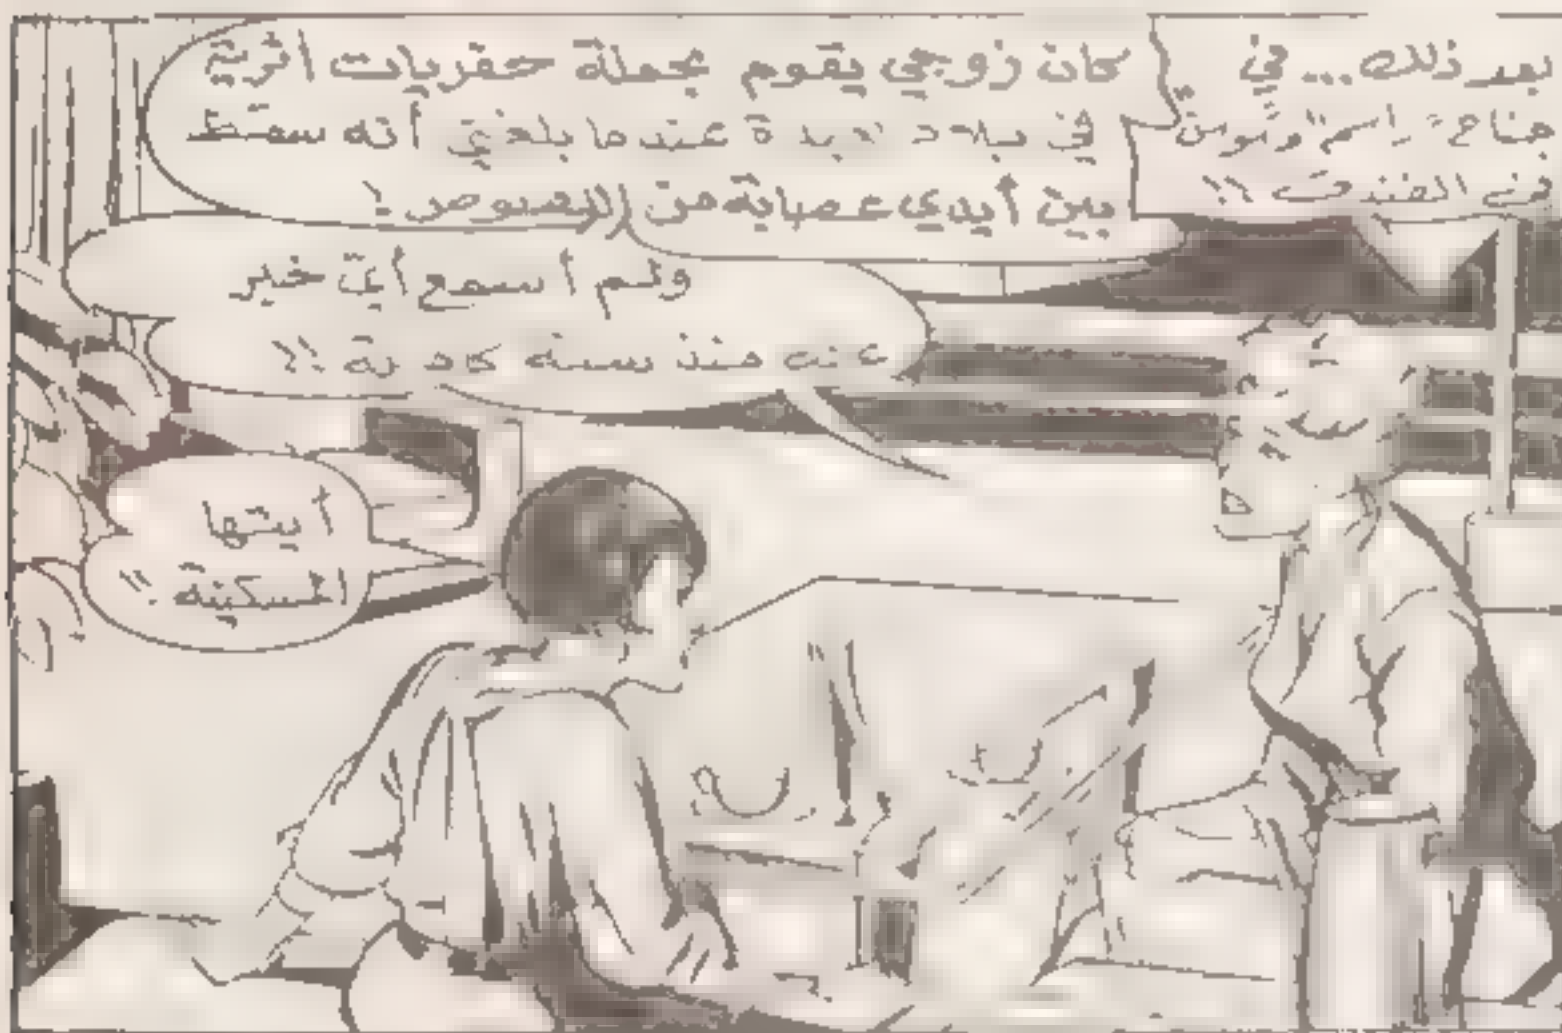 بعد ذلك... في
جناح "راسم"
في الفندق !!
كان زوجي يقوم بحملة حفريات أثرية
في بلاد بعيدة عندما بلغني أنه سقط
بين أيدي عصابة من اللصوص !
ولم أسمع أيّ خبر
عنه منذ سنة كاملة !!
أيتها
المسكينة !!